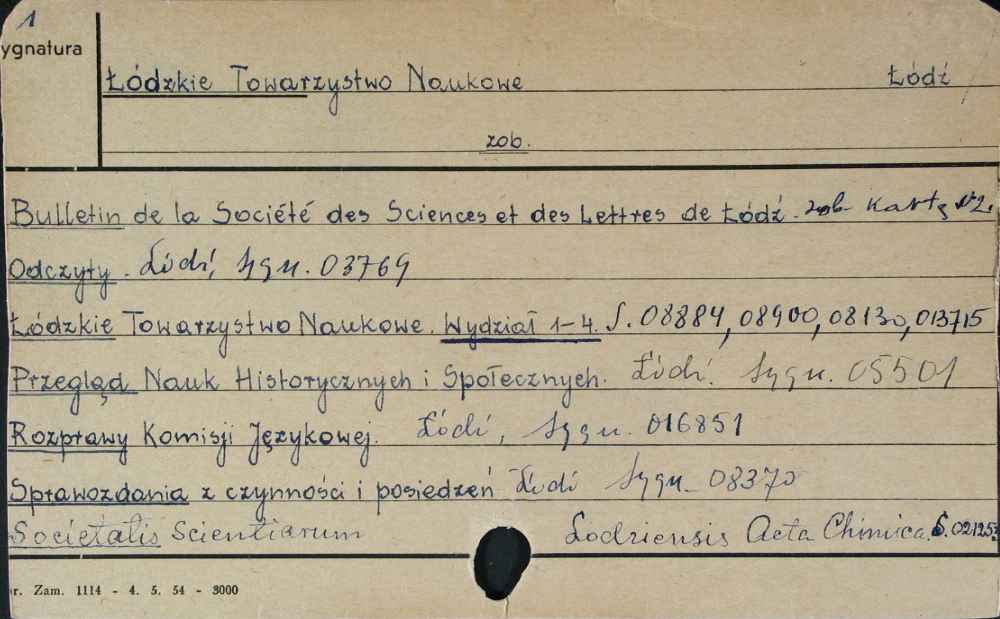 1
ygnatura
Łódzkie Towarzystwo Naukowe Łódź
zob.
Bulletin de la Société des Sciences et des Lettres de Łódź. zob. kartę nr 2.
Odczyty. Łódź, sygn. 03769
Łódzkie Towarzystwo Naukowe. Wydział 1-4. S. 08884, 08900, 08130, 013715
Przegląd Nauk Historycznych i Społecznych. Łódź. sygn. 05501
Rozprawy Komisji Językowej. Łódź, sygn. 016851
Sprawozdania z czynności i posiedzeń Łódź sygn. 08370
Societatis Scientiarum Lodziensis Acta Chimica. S. 021253
r. Zam. 1114 - 4. 5. 54 - 3000